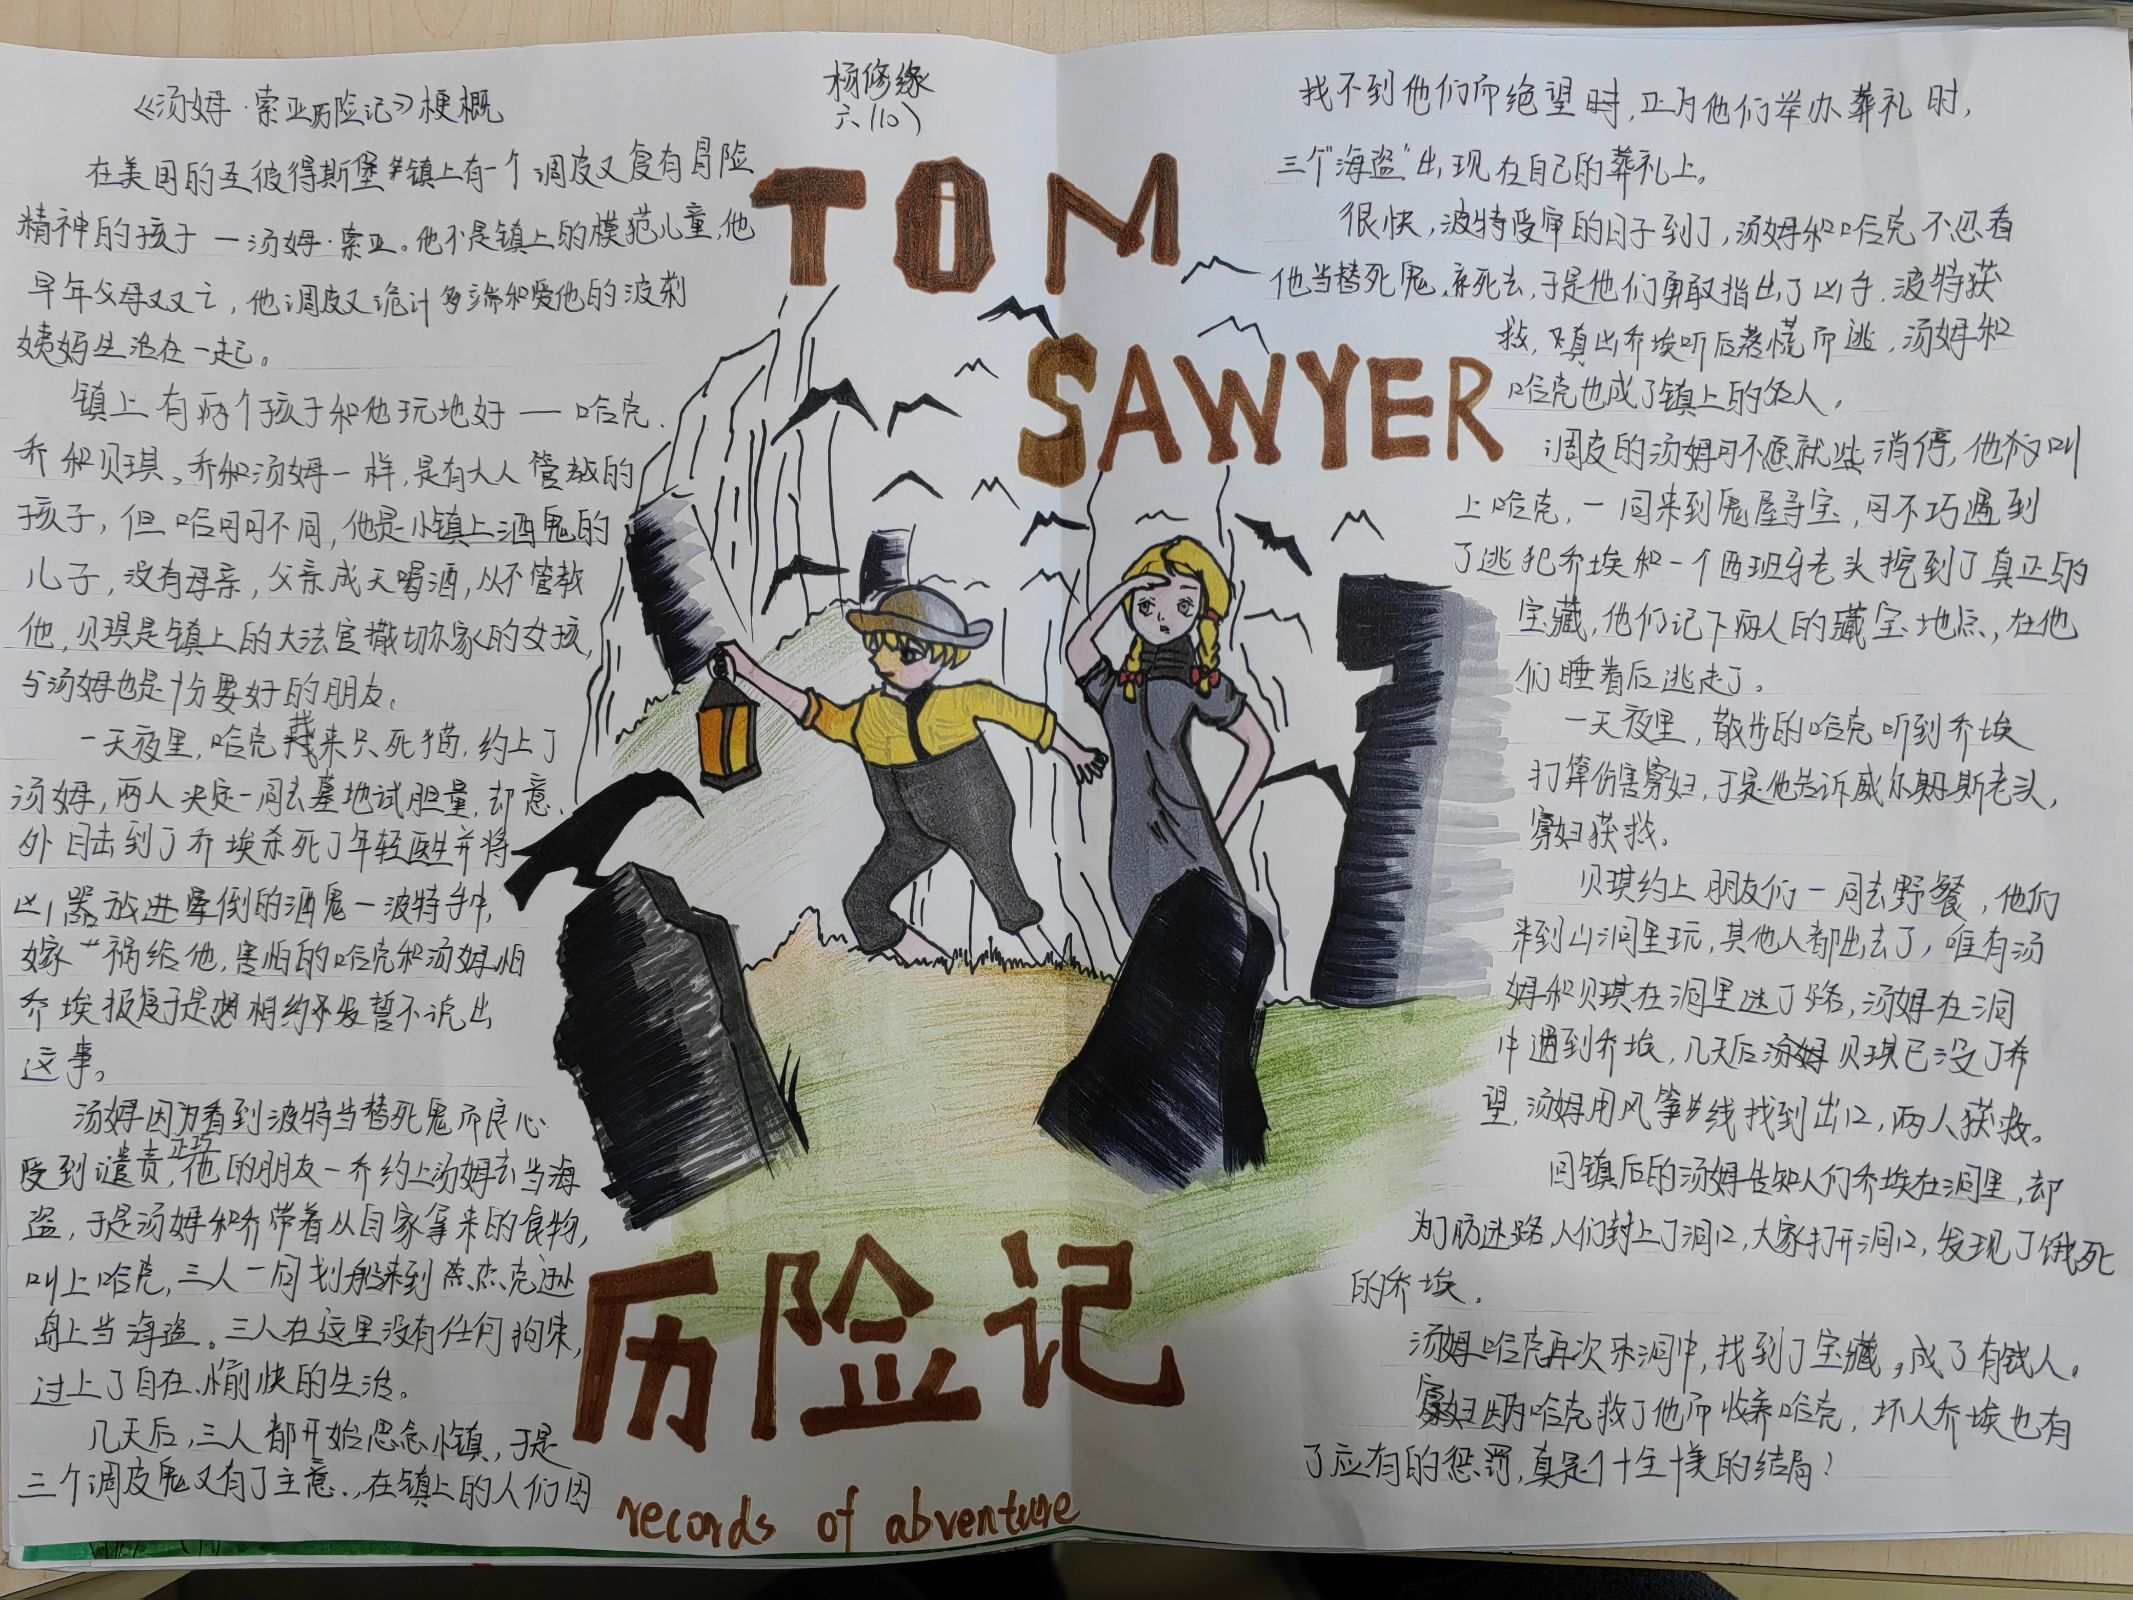 《汤姆·索亚历险记》梗概
杨修缘
六(10)
在美国的圣彼得斯堡镇上有一个调皮又富有冒险
精神的孩子—汤姆·索亚。他不是镇上的模范儿童,他
早年父母双亡,他调皮又诡计多端和爱他的波莉
姨妈生活在一起。
镇上有两个孩子和他玩地好——哈克.
乔和贝琪。乔和汤姆一样,是有大人管教的
孩子,但哈不同,他是小镇上酒鬼的
儿子,没有母亲,父亲成天喝酒,从不管教
他,贝琪是镇上的大法官撒切尔家的女孩,
与汤姆也是十分要好的朋友。
一天夜里,哈克找来只死猫,约上了
汤姆,两人决定一同去墓地试胆量,却意
外目击到了乔埃杀死了年轻医生并将
凶器放进晕倒的酒鬼—波特手中,
嫁祸给他,害怕的哈克和汤姆怕
乔埃报复于是相约发誓不说出
这事。
汤姆因为看到波特当替死鬼而良心
受到谴责,正巧他的朋友—乔约上汤姆去当海
盗,于是汤姆和乔带着从自家拿来的食物,
叫上哈克,三人一同划船来到杰克逊
岛上当海盗。三人在这里没有任何拘束,
过上了自在、愉快的生活。
几天后,三人都开始思念小镇,于是
三个调皮鬼又有了主意,在镇上的人们因
TOM
SAWYER
历险记
records of abventure
找不到他们而绝望时,正为他们举办葬礼时,
三个“海盗”出现在自己的葬礼上。
很快,波特受审的日子到了,汤姆和哈克不忍看
他当替死鬼死去,于是他们勇敢指出了凶手,波特获
救,真凶乔埃听后落慌而逃,汤姆和
哈克也成了镇上的名人。
调皮的汤姆可不愿就此消停,他叫
上哈克,一同来到鬼屋寻宝,可不巧遇到
了逃犯乔埃和一个西班牙老头挖到了真正的
宝藏,他们记下两人的藏宝地点,在他
们睡着后逃走了。
一天夜里,散步的哈克听到乔埃
打算伤害寡妇,于是他告诉威尔姆斯老头,
寡妇获救。
贝琪约上朋友们一同去野餐,他们
来到山洞里玩,其他人都出去了,唯有汤
姆和贝琪在洞里迷了路,汤姆在洞
中遇到乔埃,几天后汤姆贝琪已没了希
望,汤姆用风筝线找到出口,两人获救。
回镇后的汤姆告知人们乔埃在洞里,却
为了防迷路,人们封上了洞口,大家打开洞口,发现了饿死
的乔埃。
汤姆哈克再次来洞中,找到了宝藏,成了有钱人。
寡妇因为哈克救了他而收养哈克,坏人乔埃也有
了应有的惩罚,真是个十全十美的结局!